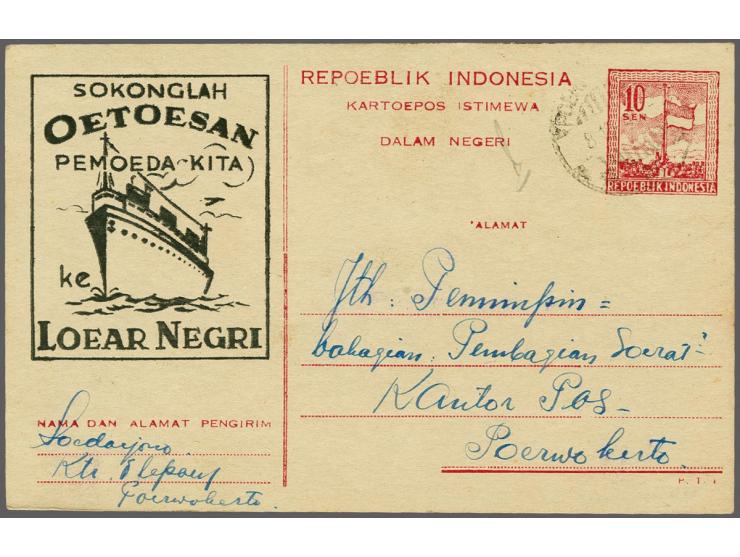 SOKONGLAH
OETOESAN
PEMOEDA-KITA)
ke
LOEAR NEGRI
NAMA DAN ALAMAT PENGIRIM
Soedarjono
Ktr. Tlepon
Poerwokerto
REPOEBLIK INDONESIA
KARTOEPOS ISTIMEWA
DALAM NEGERI
10
SEN
REPOEBLIK INDONESIA
'ALAMAT
Jth: Pemimpin =
bahagian Pembagian Soerat²
Kantor Pos -
Poerwokerto.
P. T. T